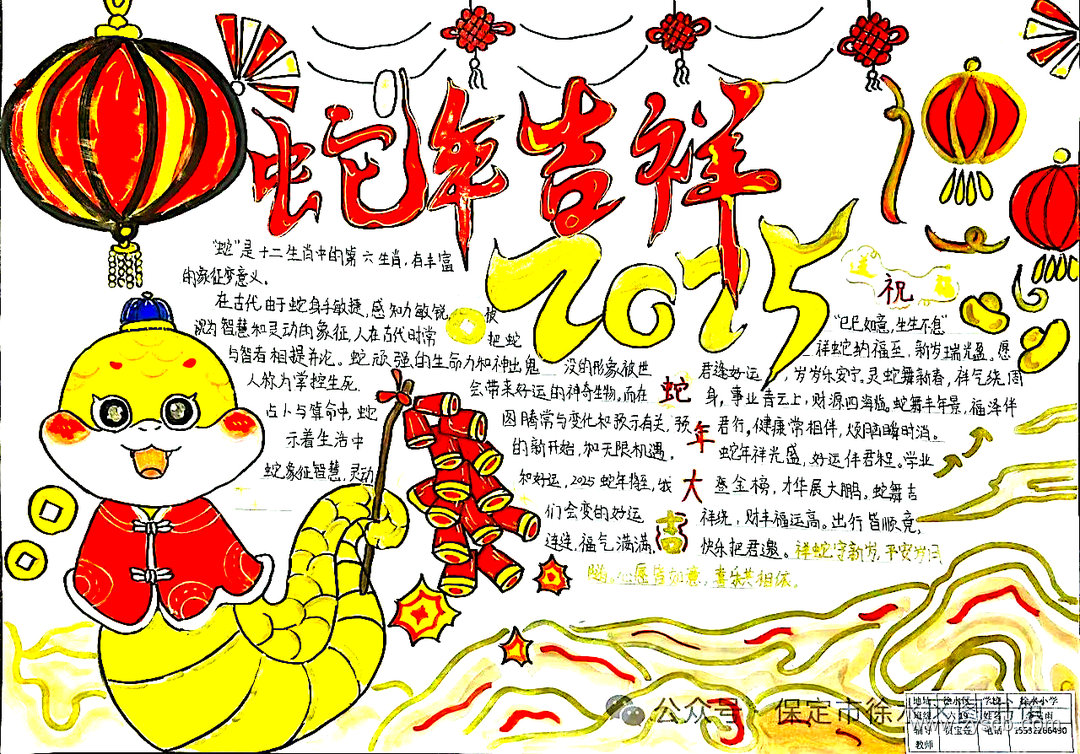 蛇年吉祥
2025
"蛇"是十二生肖中的第六生肖,有丰富
的象征梦意义.
在古代由于蛇身手敏捷,感知力敏锐,被
视为智慧知灵动的象征,人在古代时常把蛇
与智者相提并论。蛇顽强的生命力和神出鬼没的形象被世
人称为掌控生死.
会带来好运的神奇生物.而在
占卜与算命中,蛇
图腾常与变化和
示着生活中
的新开始,加无限机遇.
蛇象征智慧,灵动
和好运,2025蛇年
们会变的好运
连连,福气满满.
蛇年大吉
祝
"巳巳如意,生生不息"
祥蛇纳福至,新岁瑞光盈.愿
君逢好运,岁岁乐安宁.灵蛇舞新春,祥气绕周
身,事业青云上,财源四海临.蛇舞丰年景,福泽伴
君行,健康常相伴,烦恼瞬时消.
蛇年祥光盛,好运伴君程.学业
登金榜,才华展大鹏.蛇舞吉
祥绕,财丰福运高.出行皆顺意,
快乐把君邀.祥蛇守新岁,平安岁
心愿皆如意,喜乐共相依.
公众号 保定市徐水
学校 徐水小学
班级
姓名
辅导教师
电话